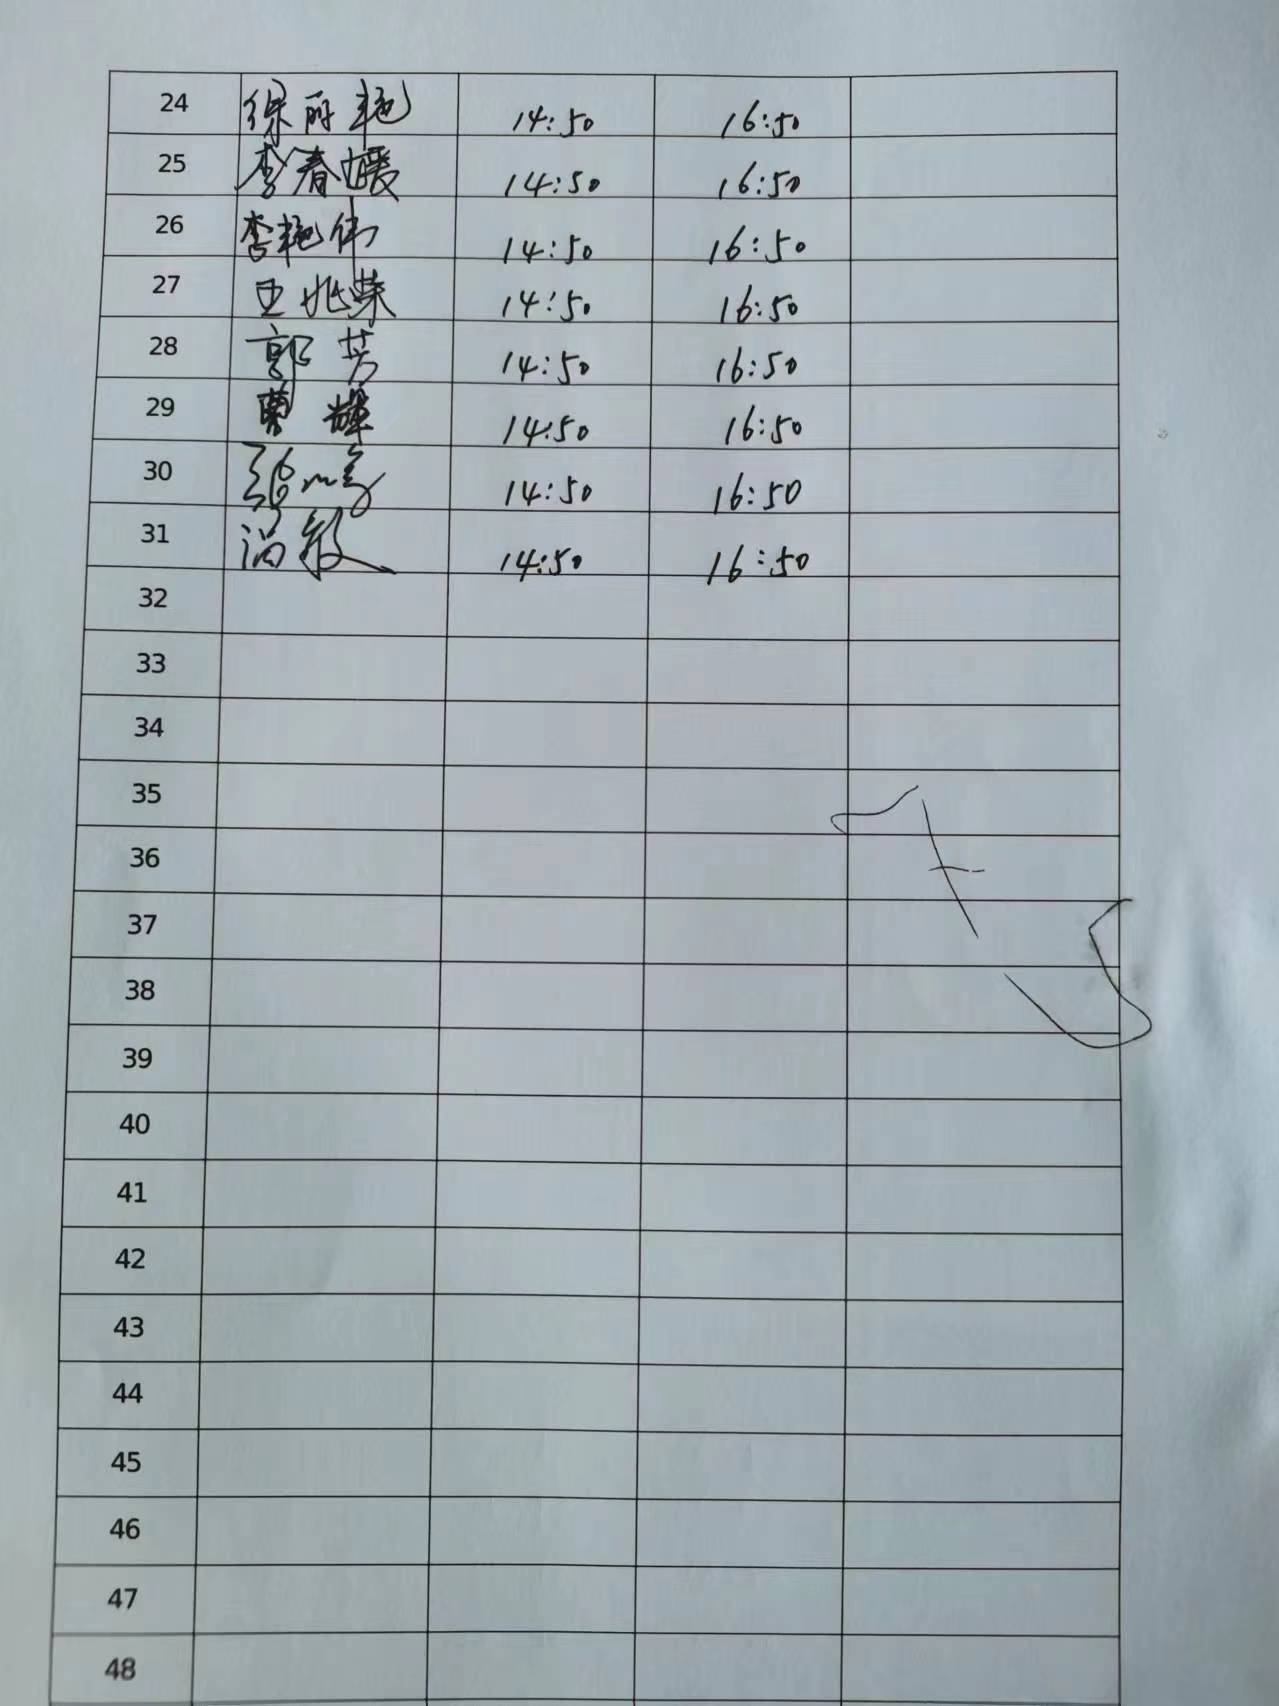 24 徐丽艳 14:50 16:50
25 李春媛 14:50 16:50
26 李艳伟 14:50 16:50
27 王兆荣 14:50 16:50
28 郭芳 14:50 16:50
29 曹辉 14:50 16:50
30 14:50 16:50
31 14:50 16:50
32
33
34
35
36
37
38
39
40
41
42
43
44
45
46
47
48